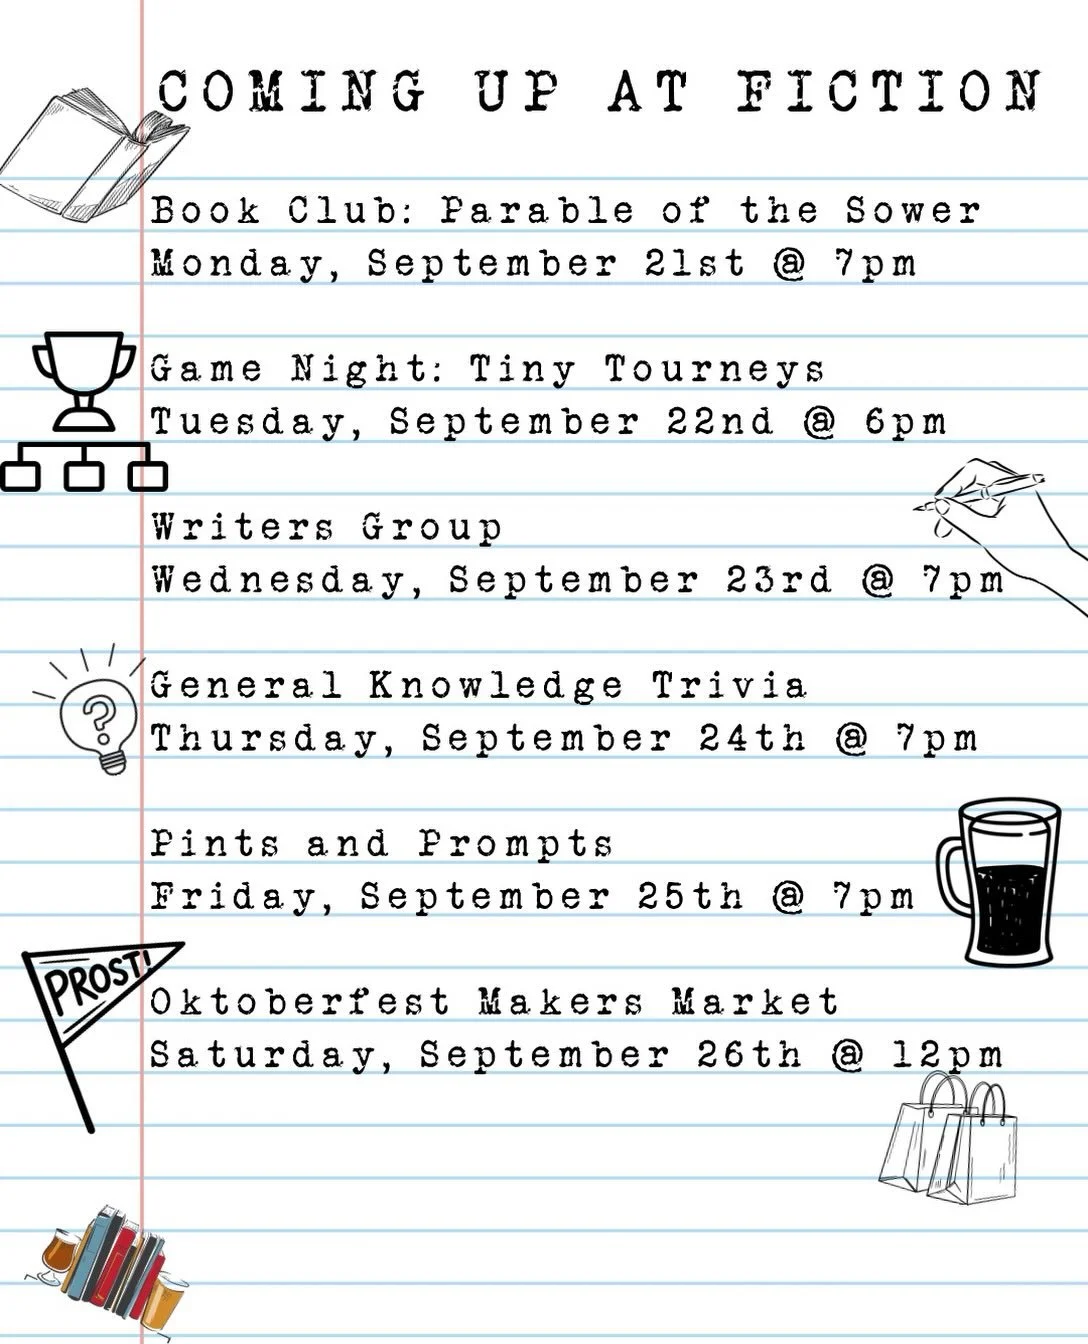 COMING UP AT FICTION
Book Club: Parable of the Sower
Monday, September 21st @ 7pm
Game Night: Tiny Tourneys
Tuesday, September 22nd @ 6pm
Writers Group
Wednesday, September 23rd @ 7pm
?
General Knowledge Trivia
Thursday, September 24th @ 7pm
Pints and Prompts
Friday, September 25th @ 7pm
PROST!
Oktoberfest Makers Market
Saturday, September 26th @ 12pm